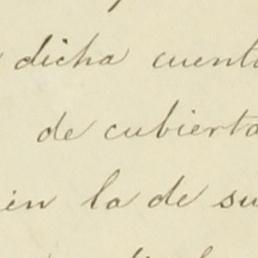 dicha cuenta
de cubierta
en la de su